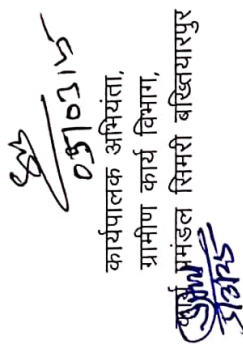 05/03/25
कार्यपालक अभियंता,
ग्रामीण कार्य विभाग,
कार्य प्रमंडल सिमरी बख्तियारपुर
5/3/25